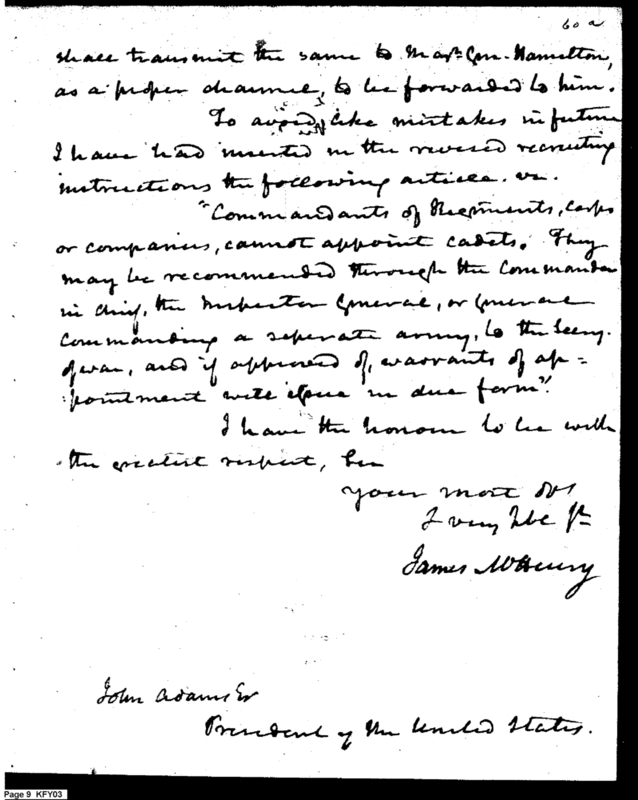 60 a
shall transmit the same to Majr. Gen. Hamilton,
as a proper channel, to be forwarded to him.
To avoid like mistakes in future
I have had inserted in the revised recruiting
instructions the following article. viz.
"Commandants of Regiments, corps
or companies, cannot appoint cadets. They
may be recommended through the Commander
in chief, the Inspector General, or general
commanding a seperate army, to the Secry.
of war, and if approved of, warrants of ap=
=pointment will issue in due form".
I have the honour to be with
the greatest respect, Sir
your most Obt
& very hble St
James McHenry
John Adams Esr
President of the United States.
Page 9 KFY03